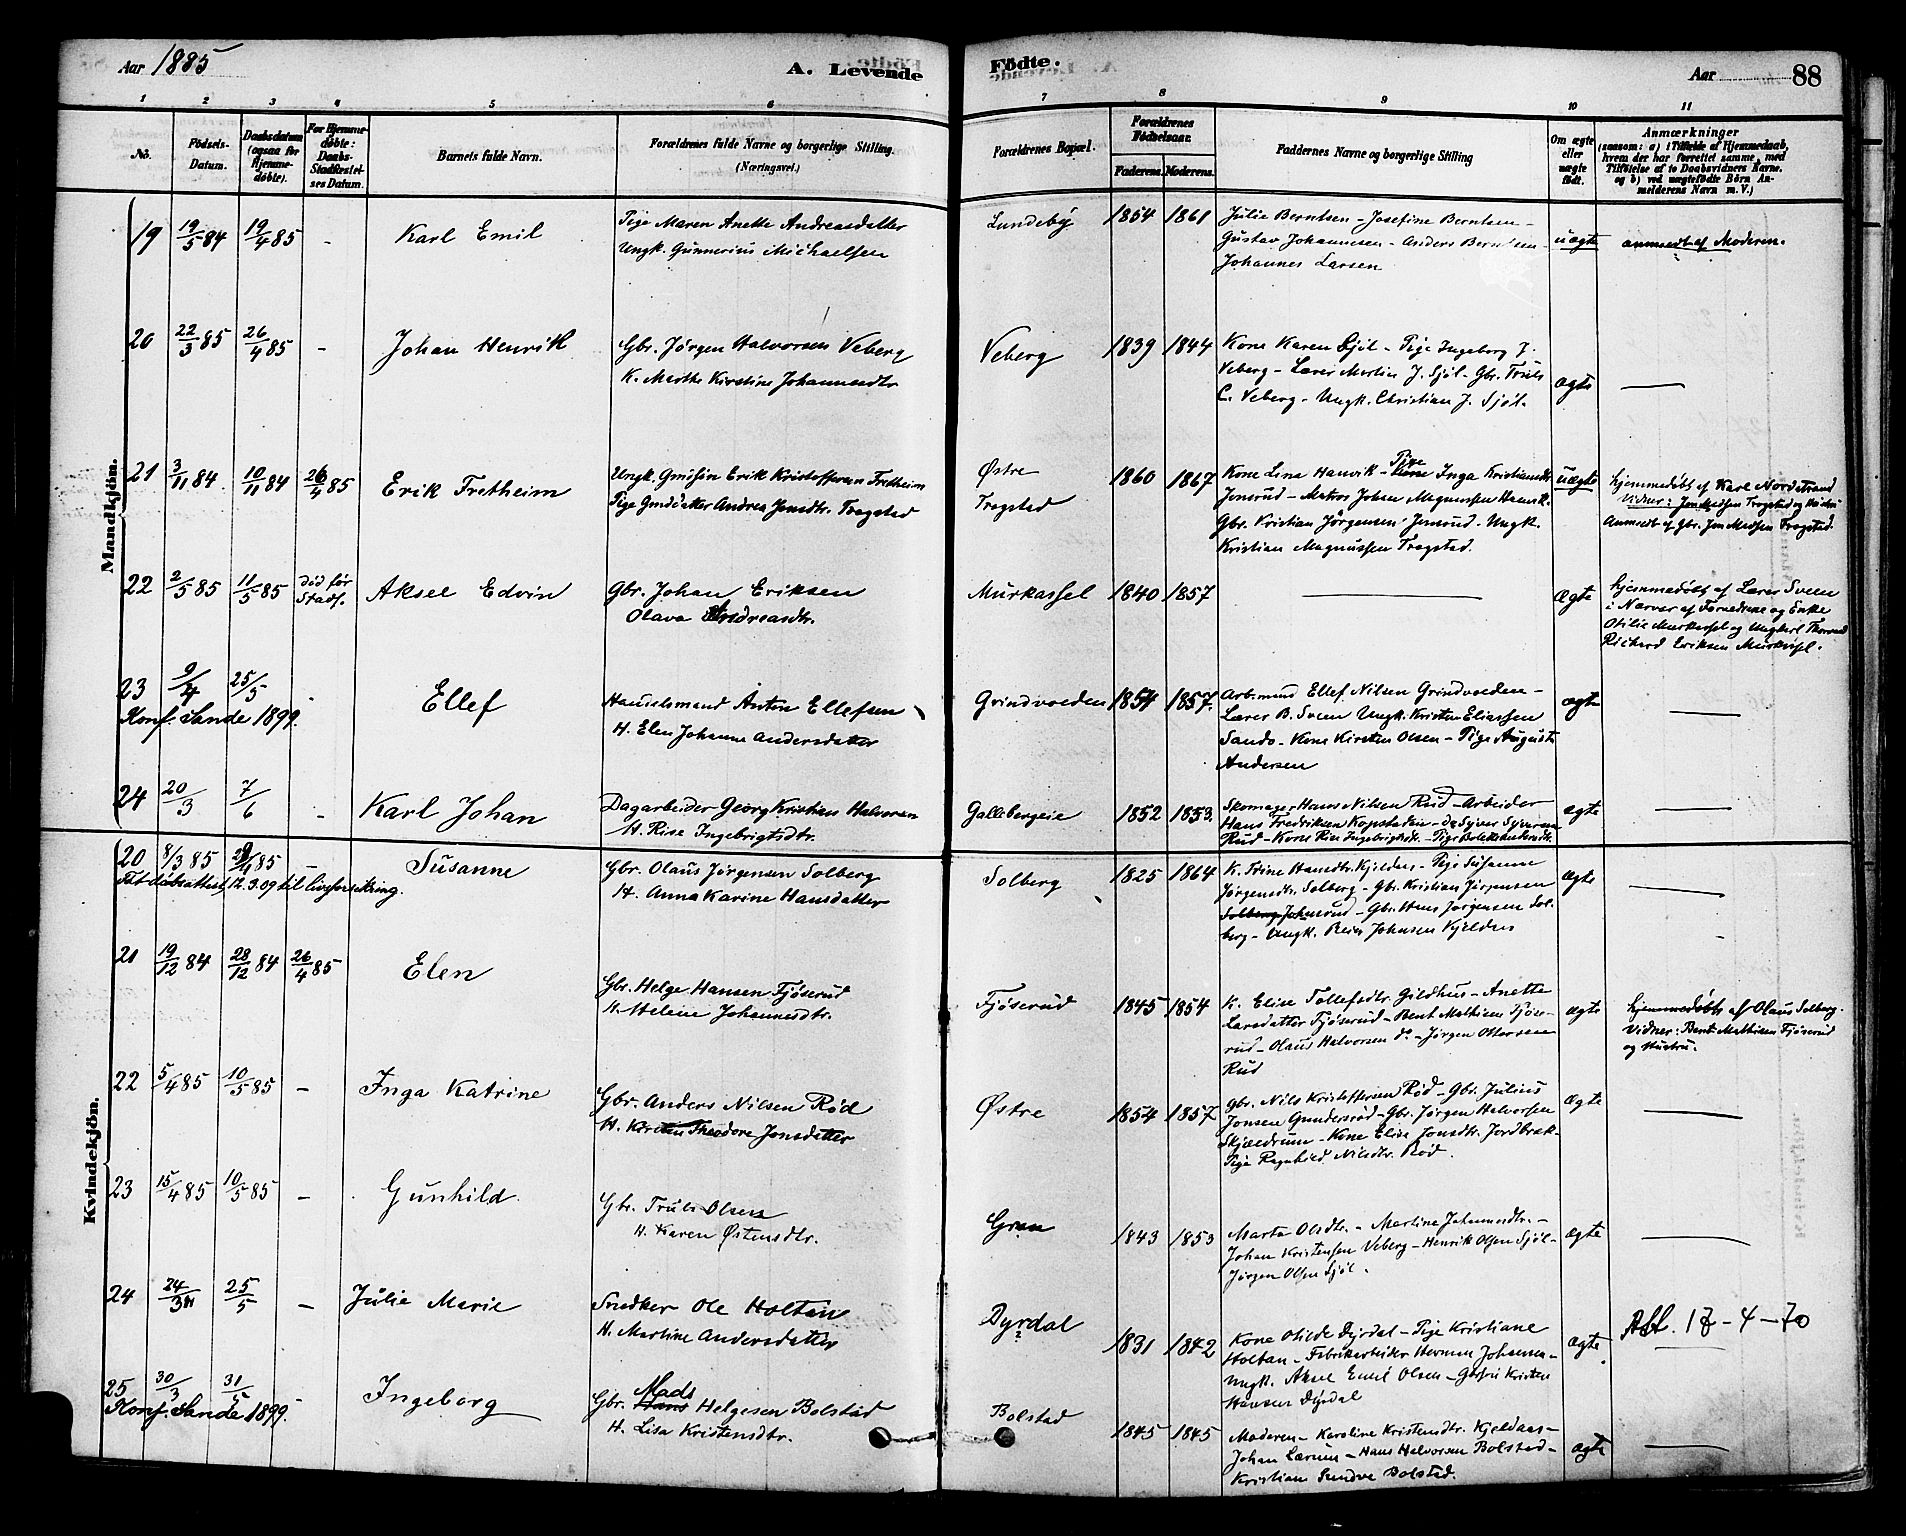 Aar 1885
A. Levende
Födte.
Aar 88
1 2 3 4 5 6 7 8 9 10 11
No.
Födsels-
Datum.
Daabsdatum
(ogsaa for
Hjemme-
döbte).
For Hjemme-
döbte:
Daabs-
Stadfæstel-
ses Datum.
Barnets fulde Navn.
Forældrenes fulde Navne og borgerlige Stilling.
(Næringsvei.)
Forældrenes Bopæl.
Forældrenes
Födselsaar.
Faderens. Moderens.
Faddernes Navne og borgerlige Stilling
Om ægte
eller
uægte
födt.
Anmærkninger
(saasom: a) i Tilfælde af Hjemmedaab,
hvem der har forrettet samme, med
Tilföielse af to Daabsvidners Navne,
og b) ved uægtefödte Börn An-
melderens Navn m. V.)
Mandkjön.
19 19/5 84 19/4 85 - Karl Emil
Pige Maren Anette Andreasdatter
Ungk. Gunnerius Michaelsen
Lundeby 1854 1861
Julie Berntsen - Josefine Berntsen -
Gustav Johannesen - Anders Berntsen -
Johannes Larsen
uægte
anmeldt af Moderen.
20 22/3 85 26/4 85 - Johan Henrik
Gbr. Jörgen Halvorsen Veberg
K. Marthe Kirstine Johannesdtr.
Veberg 1839 1844
Kone Karen Sjöl - Pige Ingeborg J.
Veberg - Lærer Martin J. Sjöl - Gbr. Truls
C. Veberg - Ungk. Christian J. Sjöl.
ægte
21 3/11 84 10/11 84 26/4 85 Erik Fretheim
Ungk. Erik Kristoffersen Fretheim
Pige Andrea Jensdtr. Tragstad
Østre
Tragstad
1860 1867
Kone Lina Hanvik - Pige Inga Kristiansdtr.
Jonsrud - Matros Johan Magnussen Hanvik
Gbr. Kristian Jörgensen Jonsrud - Ungk.
Kristian Magnussen Tragstad.
uægte
hjemmedöbt af Karl Nordstrand
Vidner: Jon Madsen Tragstad og
Anmeldt af Gbr. Jon Madsen Tragstad.
22 2/5 85 11/5 85 död för
Stadf.
Aksel Edvin
Gbr. Johan Eriksen
Olava Andreasdtr.
Murkassel 1840 1857
ægte
hjemmedöbt af Lærer Sveen
i Nærvær af Forældrene og Enke
Otilie Murkassel og Ungkarl
Richard Eriksen Murkassel.
23 9/4 25/5 - Ellef
Konf. Sande 1899.
Husmand Anton Ellefsen
H. Elen Johanne Andersdatter
Grindvolden 1854 1857.
Arb.mand Ellef Nilsen Grindvolden -
Lærer B. Sveen Ungk. Kristen Eliassen
Sando - Kone Kirsten Olsen - Pige Augusta
Andersen
ægte
24 20/3 7/6 - Karl Johan
Dagarbeider Georg Kristian Halvorsen
H. Rise Ingebrigtsdtr.
Gallebergeie 1852 1853.
Skomager Hans Nilsen Rud - Arbeider
Hans Fredriksen Kopstadeie - do Syver Syversen
Rud - Kone
ægte
Kvindekjön.
20 8/3 85 85 - Susanne
12.3.09 til livsforsikring.
Gbr. Olaus Jørgensen Solberg
H. Anna Karine Hansdatter
Solberg 1825 1864
K. Trine Hansdtr. Kjeldaas - Pige Susanne
Jørgensdtr. Solberg - Gbr. Kristian Jørgensen
Solberg Johnsrud - Gbr. Hans Jørgensen Sol-
berg - Ungk. Johnsen Kjeldaas
ægte
21 19/12 84 28/12 84 26/4 85 Elen
Gbr. Helge Hansen Fjöserud
H. Helene Johannesdtr.
Fjöserud 1845 1854
K. Elise Tollefsdtr. Gildhus - Anette
Larsdatter Fjöserud - Bent Mathisen Fjöse-
rud - Olaus Halvorsen do - Jørgen Ottersen
Rud
ægte
hjemmedöbt af Olaus Solberg.
Vidner: Bent Mathisen Fjöserud
og Hustru.
22 5/4 85 10/5 85 - Inga Katrine
Gbr. Anders Nilsen Röd
H. Kirsten Theodore Jonsdatter
Østre 1854 1857
Gbr. Nils Kristoffersen Röd - Gbr. Julius
Jonsen Gundersrud - Gbr. Jørgen Halvorsen
Skjældrum - Kone Elise Jonsdtr. Jordbræk -
Pige Ragnhild Nilsdtr. Röd.
ægte
23 15/4 85 10/5 85 - Gunhild.
Gbr. Truls Olsen
H. Karen Østensdtr.
Gran 1843 1853
Marta Olsdtr. - Martine Johannesdtr. -
Johan Kristensen Veberg - Henrik Olsen Sjöl -
Jørgen Olsen Sjöl.
ægte
24 24/3 25/5 - Julie Marie
Snedker Ole Holtan
H. Martine Andersdatter
Dyrdal 1831 1842
Kone Otilde Dyrdal - Pige Kristiane
Holtan - Fabrikarbeider Herman Johansen -
Ungk. Aksel Emil Olsen - Kristen
Hansen Dyrdal
ægte
17-4-70
25 30/3 31/5 Ingeborg
Konf. Sande 1899.
Gbr. Hans Mads Helgesen Bolstad
H. Lisa Kristensdtr.
Bolstad 1845 1845
Moderen - Karoline Kristensdtr. Kjeldaas -
Johan Lærum - Hans Halvorsen Bolstad -
Kristian Bolstad.
ægte